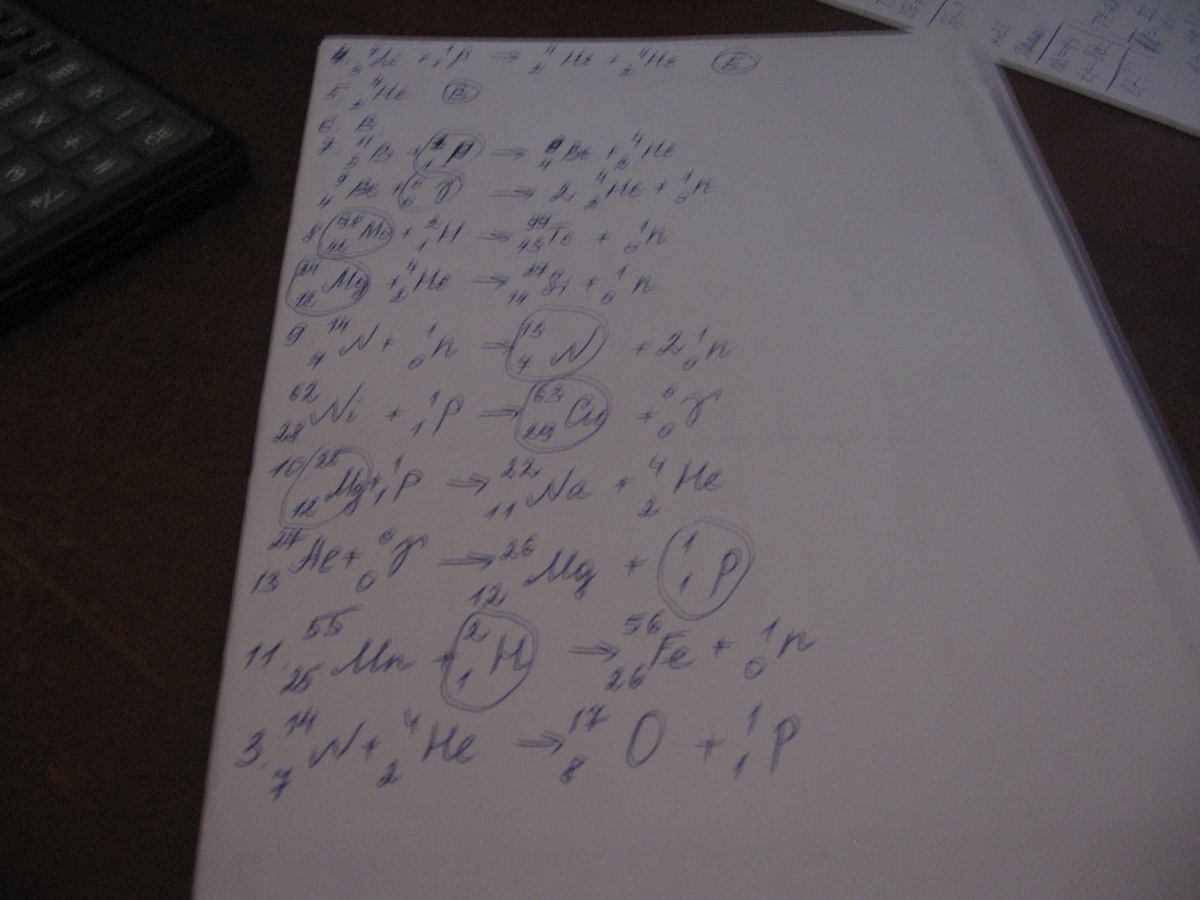 4. ⁷₃Li + ¹₁P → ⁴₂He + ⁴₂He Б
5. ⁴₂He В
6. В.
7. ¹¹₅B + ²₁P → ⁹₄Be + ⁴₂He
⁹₄Be + ⁰₀γ → 2 ⁴₂He + ¹₀n
8 ⁹⁸₄₂Mo + ²₁H → ⁹⁹₄₃Tc + ¹₀n
²⁴₁₂Mg + ⁴₂He → ²⁷₁₄Si + ¹₀n
9. ¹⁴₇N + ¹₀n → ¹³₇N + 2 ¹₀n
⁶²₂₈Ni + ¹₁P → ⁶³₂₉Cu + ⁰₀γ
10 ²⁵₁₂Mg + ¹₁P → ²²₁₁Na + ⁴₂He
²⁷₁₃Al + ⁰₀γ → ²⁶₁₂Mg + ¹₁P
11. ⁵⁵₂₅Mn + ²₁H → ⁵⁶₂₆Fe + ¹₀n
3. ¹⁴₇N + ⁴₂He → ¹⁷₈O + ¹₁P